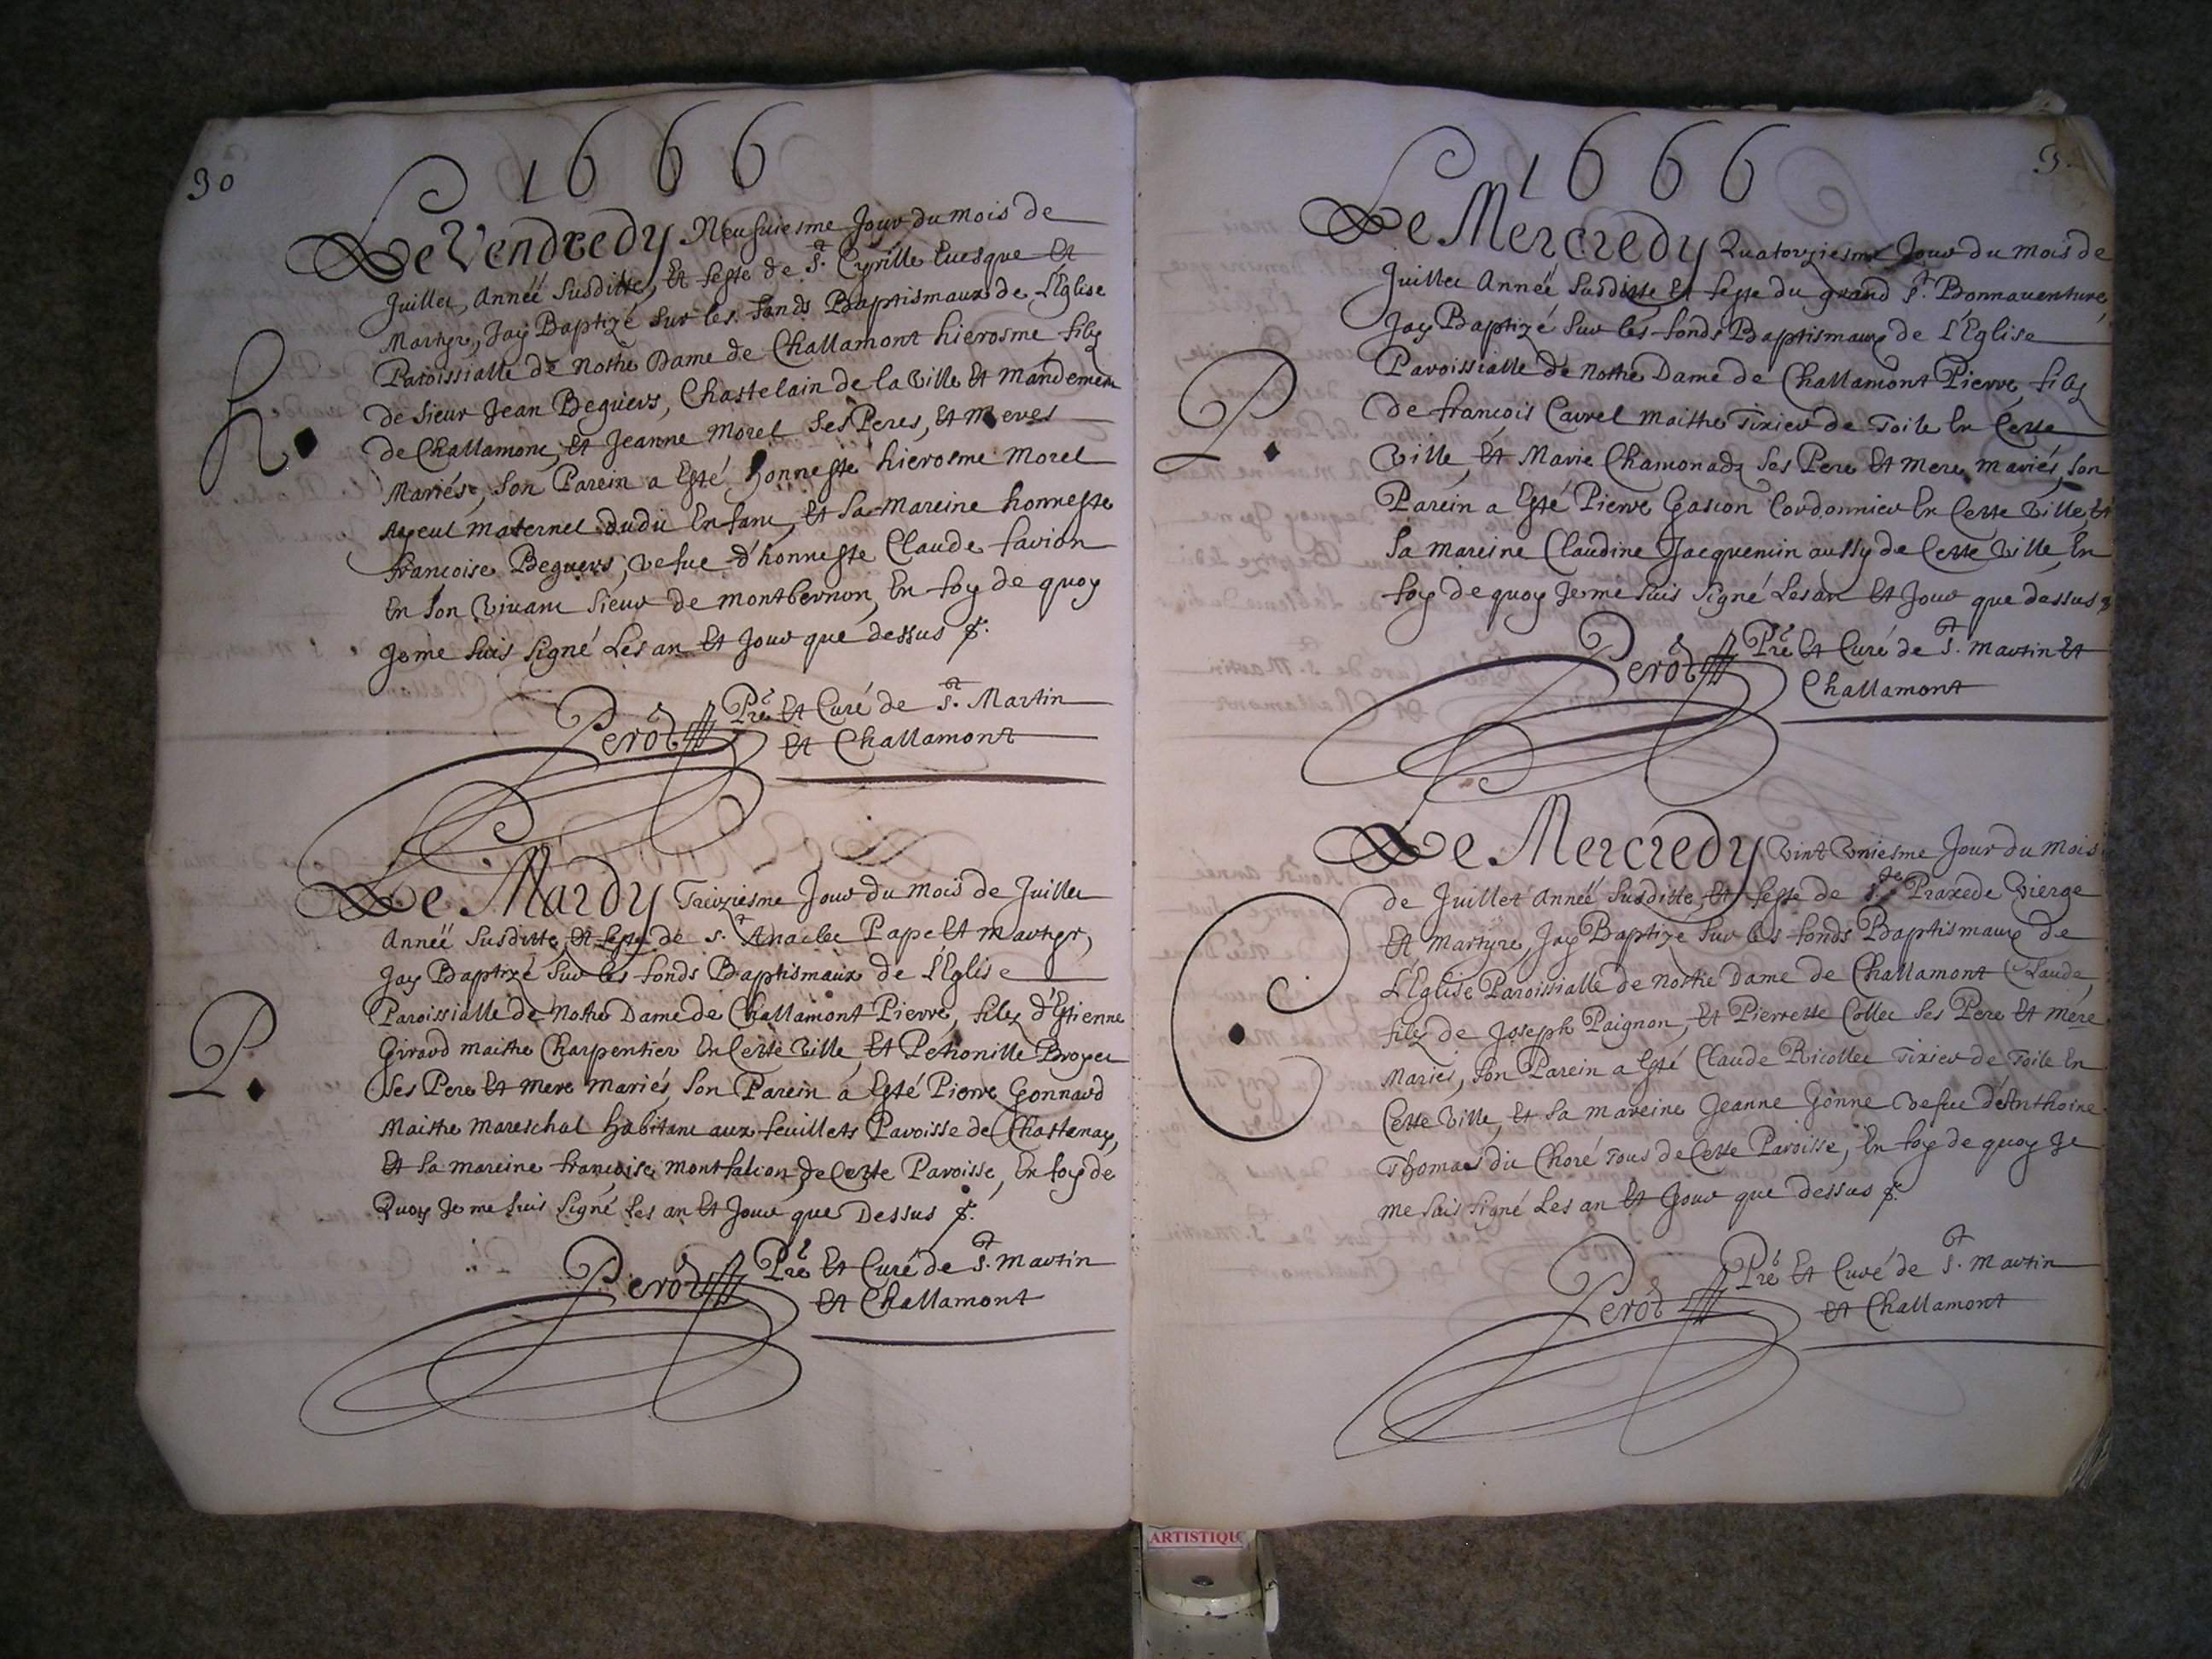 30
1666
Le Vendredy Neufuiesme Jour du mois de
Juillet, Année susditte, Et feste de St. Cyrille Euesque Et
Martyr, Jay Baptizé sur les fonds Baptismaux de L'Eglise
Paroissialle de Nostre Dame de Challamont hierosme filz
de Sieur Jean Beguers, Chastelain de la Ville Et Mandement
de Challamont, Et Jeanne Morel ses Peres, Et Meres
Mariés, Son Parein a Esté honneste hierosme Morel
Ayeul maternel dudit Enfant, Et Sa Mareine honneste
francoise Beguers, vefue d'honneste Claude favion
En son Vivant Sieur de montbernon, En foy de quoy
Je me suis signé Les an Et Jour que dessus
h.
Perod Pre Et Curé de St. Martin
Et Challamont
Le Mardy Treiziesme Jour du mois de Juillet
Année susditte, Et feste de St. Anaclet Pape Et Martyr,
Jay Baptizé sur les fonds Baptismaux de L'Eglise
Paroissialle de Nostre Dame de Challamont Pierre, filz d'Estienne
Giraud maistre Charpentier En Cette Ville, Et Petronille Broyer
Ses Pere Et Mere mariés, Son Parein a Esté Pierre Gonnard
Maistre Mareschal habitant aux feuillets Paroisse de Chastenay,
Et Sa mareine francoise montfalcon de Cette Paroisse, En foy de
Quoy Je me suis signé Les an Et Jour que Dessus
P.
Perod Pre Et Curé de St. Martin
Et Challamont
1666
Le Mercredy Quatorziesme Jour du mois de
Juillet Année susditte Et feste du grand St. Bonnauenture,
Jay Baptizé sur les fonds Baptismaux de L'Eglise
Paroissialle de Nostre Dame de Challamont Pierre, filz
de francois Carrel maistre Tixier de Toile En Cette
Ville, Et Marie Chamonadz ses Pere Et Mere, mariés, Son
Parein a Esté Pierre Gascon Cordonnier En Cette Ville, Et
Sa mareine Claudine Jacquemin aussy de Cette Ville, En
foy de quoy Je me suis signé Les an Et Jour que dessus
P.
Perod Pre Et Curé de St. Martin Et
Challamont
Le Mercredy Vint Vniesme Jour du Mois
de Juillet Année susditte, Et feste de Ste Praxede Vierge
Et Martyre, Jay Baptizé sur les fonds Baptismaux de
L'Eglise Paroissialle de Nostre Dame de Challamont Claude,
filz de Joseph Paignon, Et Pierrette Collet ses Pere Et Mere
Mariés, Son Parein a Esté Claude Ricollet Tixier de Toile En
Cette Ville, Et Sa mareine Jeanne Gonne vefue d'Anthoine
Thomas dit Choré Tous de Cette Paroisse, En foy de quoy Je
me suis signé Les an Et Jour que dessus
C.
Perod Pre Et Curé de St. Martin
Et Challamont
ARTISTIQU